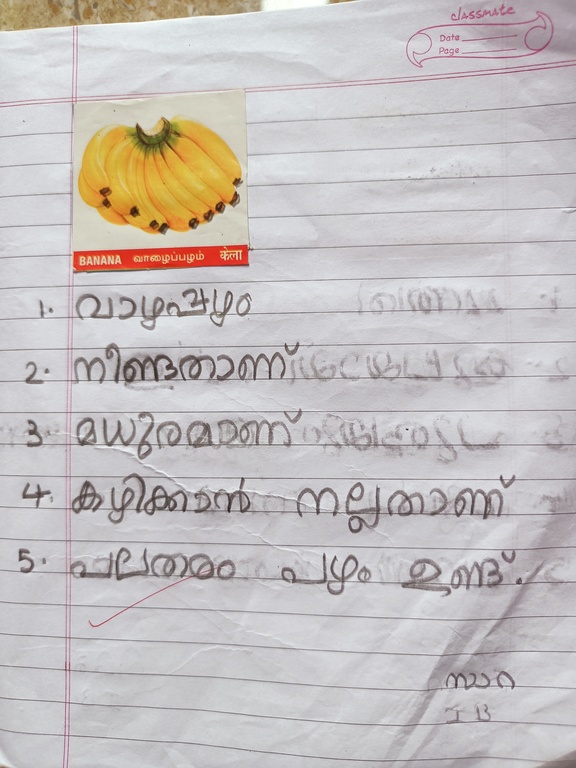 classmate
Date
Page
BANANA வாழைப்பழம் केला
1. വാഴപ്പഴം
2. നീണ്ടതാണ്
3. മധുരമാണ്
4. കഴിക്കാൻ നല്ലതാണ്
5. പലതരം പഴം ഉണ്ട്.
സാറ
I B